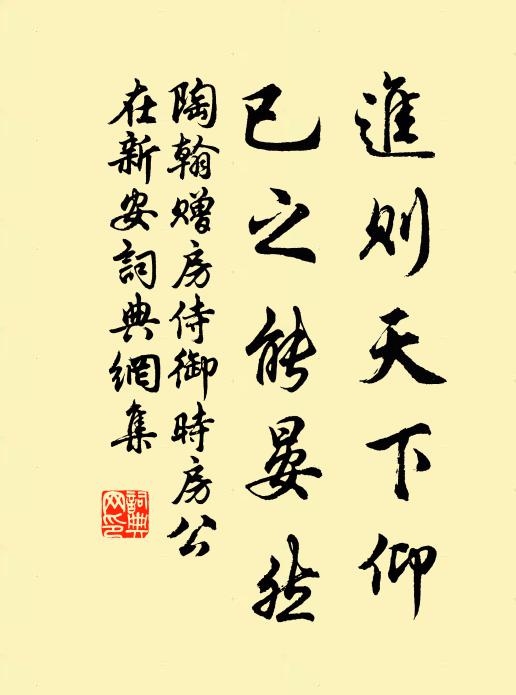 進则天下仰
已之能晏然
陶翰赠房侍御时房公
在新安詞典網集
詞典
网印